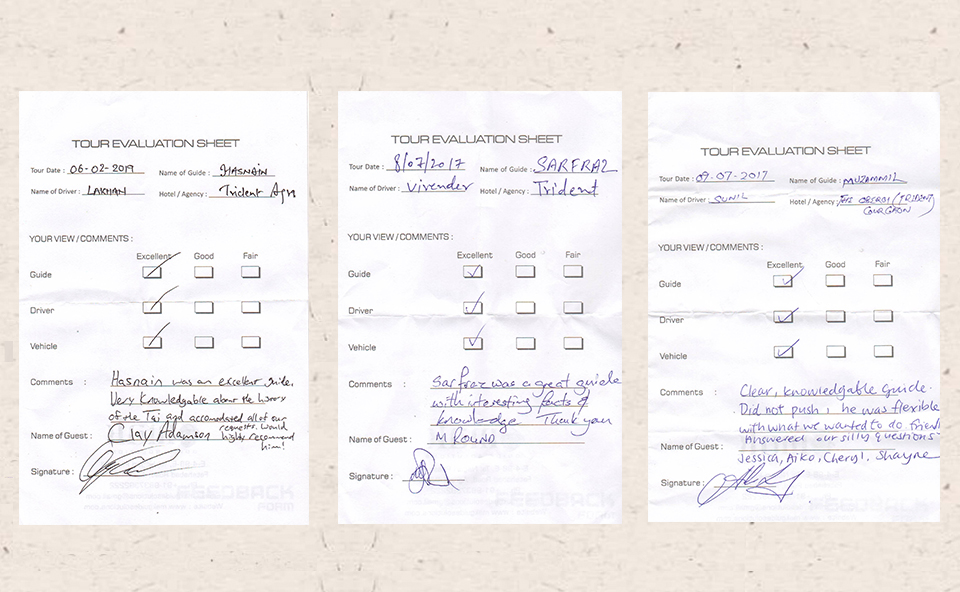 TOUR EVALUATION SHEET
Tour Date : 06-02-2019 Name of Guide : HASNAIN
Name of Driver : LAKHAN Hotel / Agency : Trident Agra
YOUR VIEW / COMMENTS :
Excellent Good Fair
Guide
Driver
Vehicle
Comments : Hasnain was an excellent guide.
Very Knowledgable about the history
of the Taj and accomodated all of our
requests. Would
highly recommend
him!
Name of Guest : Clay Adamson
Signature :
FEEDBACK
FORM
TOUR EVALUATION SHEET
Tour Date : 8/07/2017 Name of Guide : SARFRAZ
Name of Driver : Virender Hotel / Agency : Trident
YOUR VIEW / COMMENTS :
Excellent Good Fair
Guide
Driver
Vehicle
Comments : Sarfraz was a great guide
with interesting facts of
knowledge Thank you
Name of Guest : M ROUND
Signature :
FEEDBACK
FORM
TOUR EVALUATION SHEET
Tour Date : 09-07-2017 Name of Guide : MUZAMMIL
Name of Driver : SUNIL Hotel / Agency : THE OBEROI (TRIDENT)
GURGAON
YOUR VIEW / COMMENTS :
Excellent Good Fair
Guide
Driver
Vehicle
Comments : Clear, knowledgable guide.
Did not push, he was flexible
with what we wanted to do
Answered our silly questions
Name of Guest : Jessica, Aiko, Cheryl, Shayne
Signature :
FEEDBACK
FORM